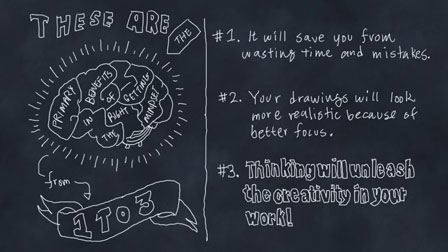 THESE ARE
THE
PRIMARY
BENEFITS
OF
GETTING
IN
THE
RIGHT
MINDSET
from
1 TO 3
#1. It will save you from
wasting time and mistakes.
#2. Your drawings will look
more realistic because of
better focus.
#3. Thinking will unleash
the creativity in your
work!